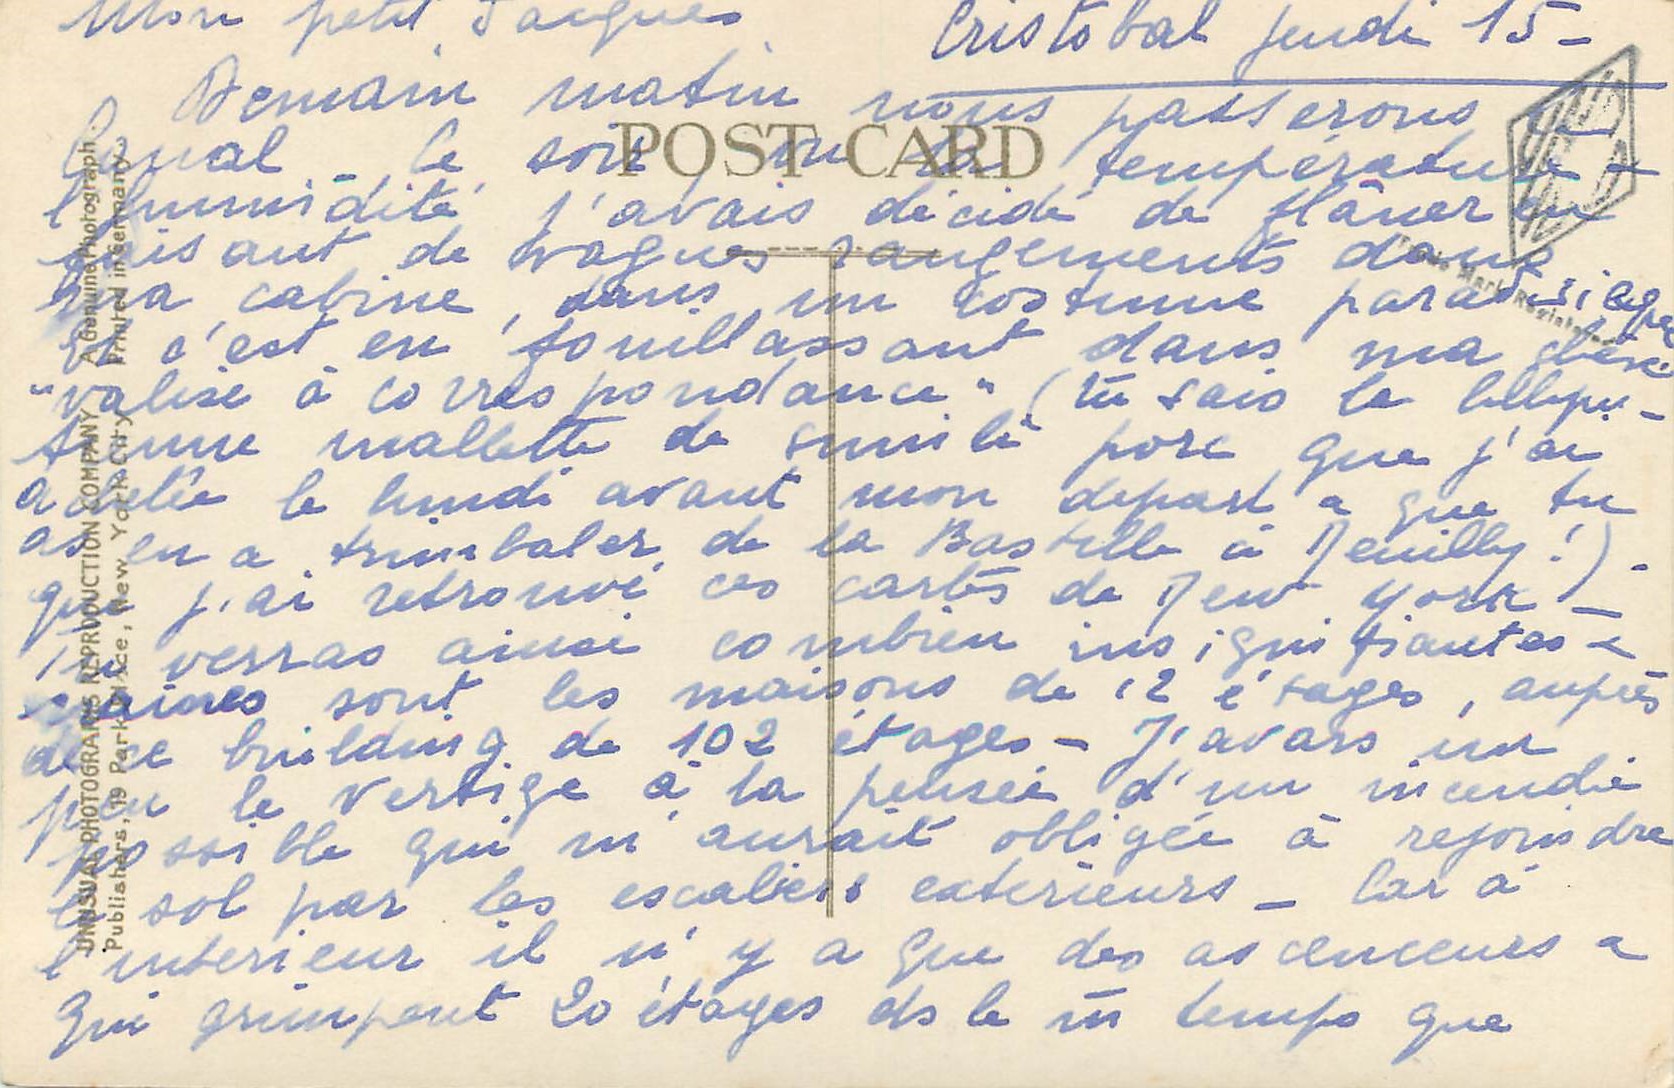 Mon petit Jacques
Cristobal jeudi 15 -
Demain matin nous passerons le
Canal. Ce soir, vu la température &
l'humidité j'avais décidé de flâner en
faisant de vagues rangements dans
ma cabine, dans un costume paradisiaque
Et c'est en fouillassant dans ma chère
"valise à correspondance" (tu sais la lillipu-
tienne mallette de simili porc que j'ai
achetée le lundi avant mon départ & que tu
as eu à trimbaler de la Bastille à Neuilly!) -
que j'ai retrouvé ces cartes de New York -
Tu verras ainsi combien insignifiantes &
naines sont les maisons de 12 étages, auprès
de ce building de 102 étages - J'avais un
peu le vertige à la pensée d'un incendie
possible qui m'aurait obligée à rejoindre
le sol par les escaliers exterieurs - Car à
l'interieur il n'y a que des ascenceurs &
qui grimpent 20 étages ds le m̄ temps que
POST CARD
UNUSUAL PHOTOGRAPHS REPRODUCTION COMPANY A Genuine Photograph.
Publishers, 19 Park Place, New York City Printed in Germany.
Trade Mark Registered